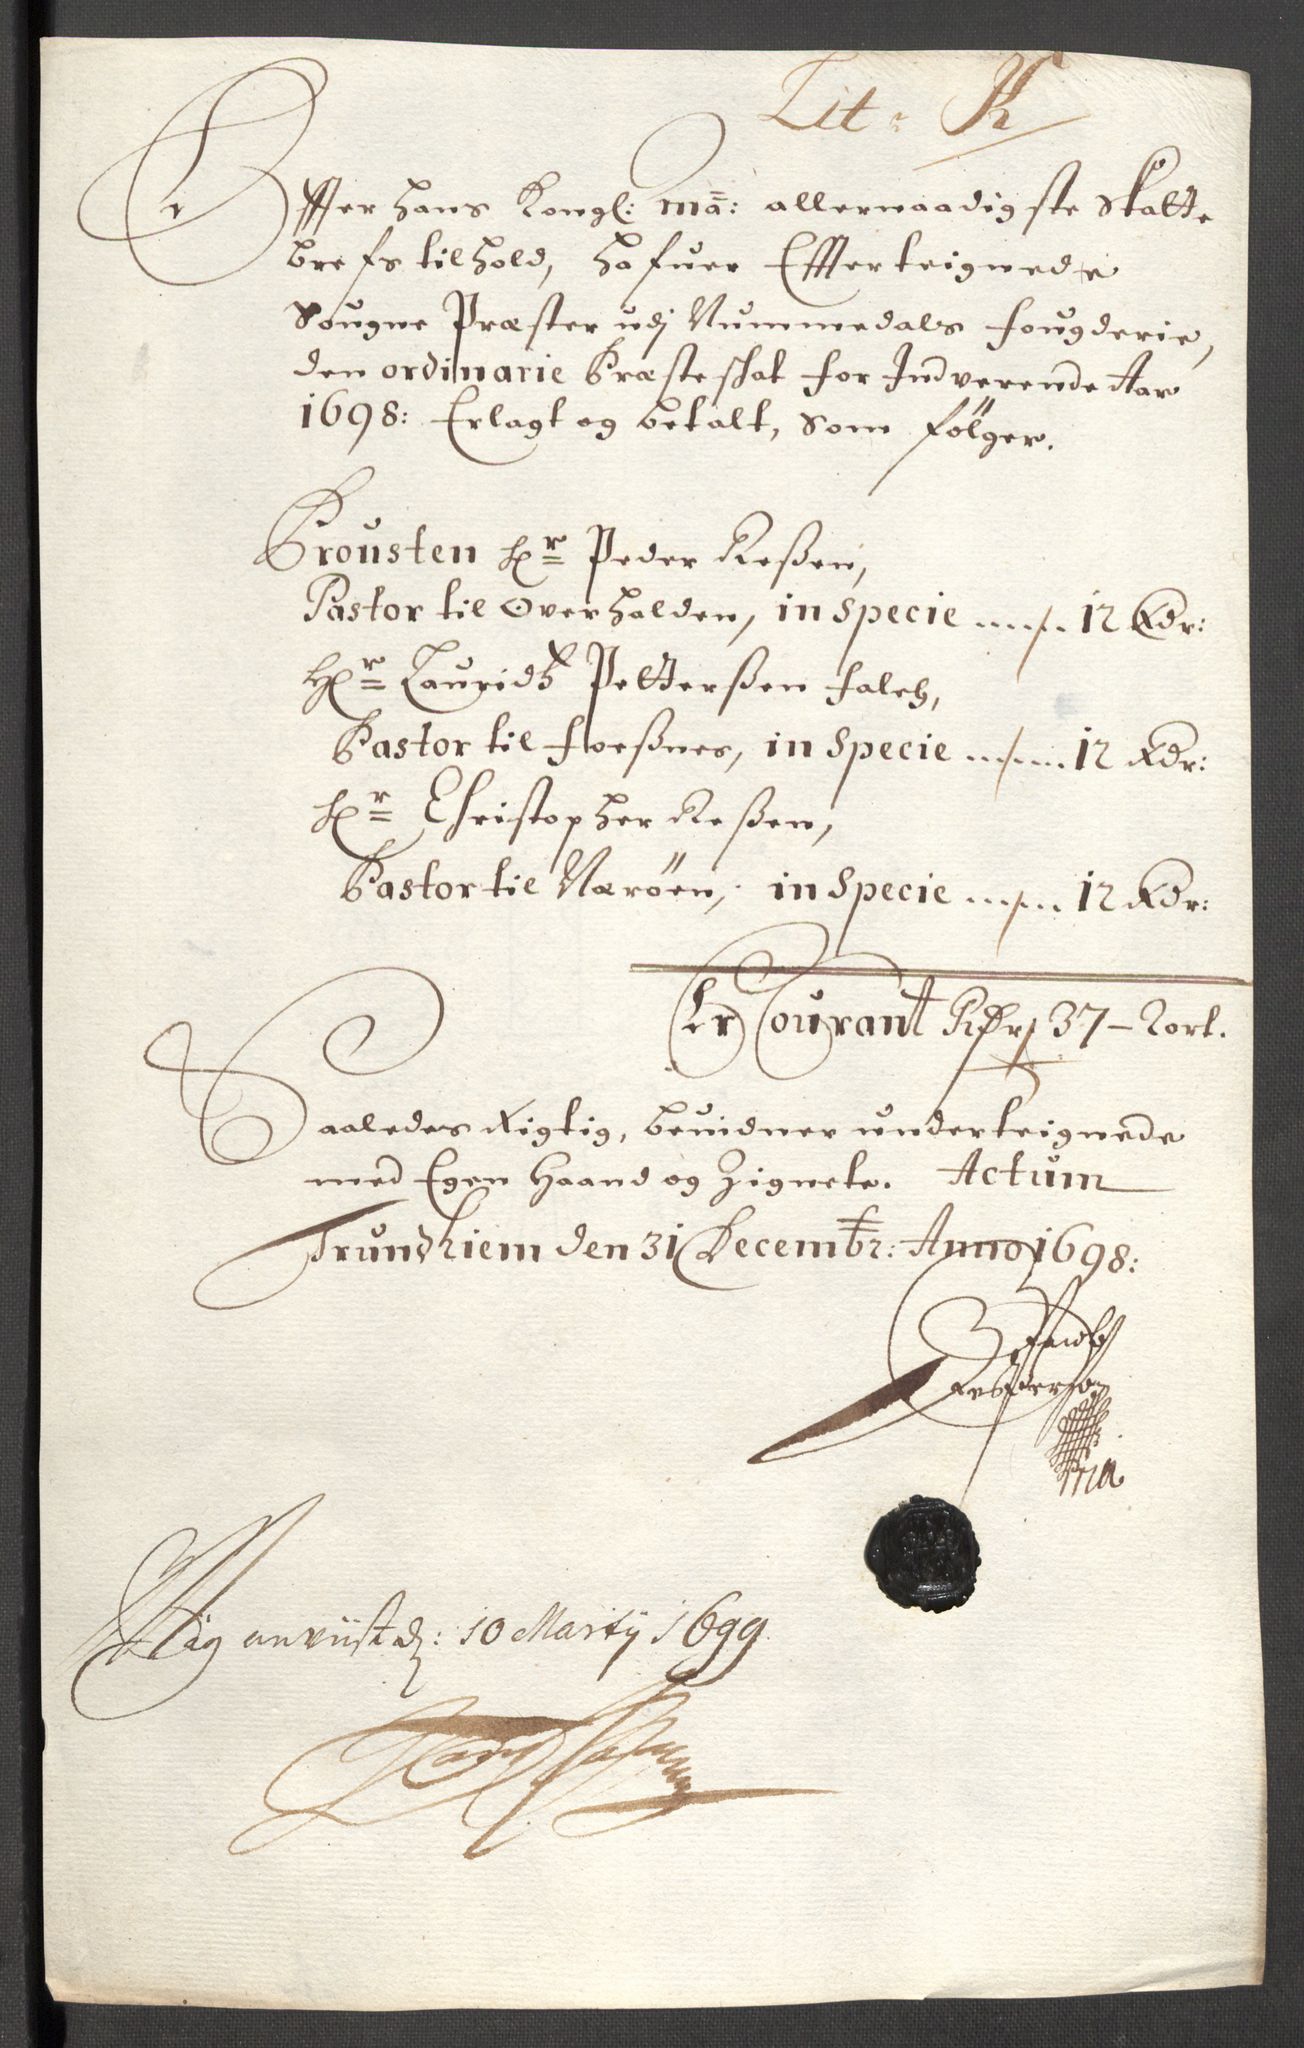 Lit: K
Effter hans Kongl: Ma: allernaadigste Skatte
brefs tilhold, hafuer Effterteignede
Sougne Præster udj Nummedals fougderie,
den ordinarie Præsteskat for Indverende Aar
1698: Erlagt og betalt, Som følger.
Prousten Hr Peder Reßen,
Pastor til Overhalden, in Specie ... 12 Rdr:
Hr Lauridß Petterßen falch,
Pastor til foeßnes, in Specie ... 12 Rdr:
Hr Christopher Reßen,
Pastor til Nærøen, in Specie ... 12 Rdr:
Er Courant Rdr 37 - 2 ort.
Saaledes Rigtig, bevidner underteignede
med Egen Haand og Zignete. Actum
Trundhiem den 31 Decembr: Anno 1698:
Jacob
Jesperson
Mig anviist d: 10 Martij 1699